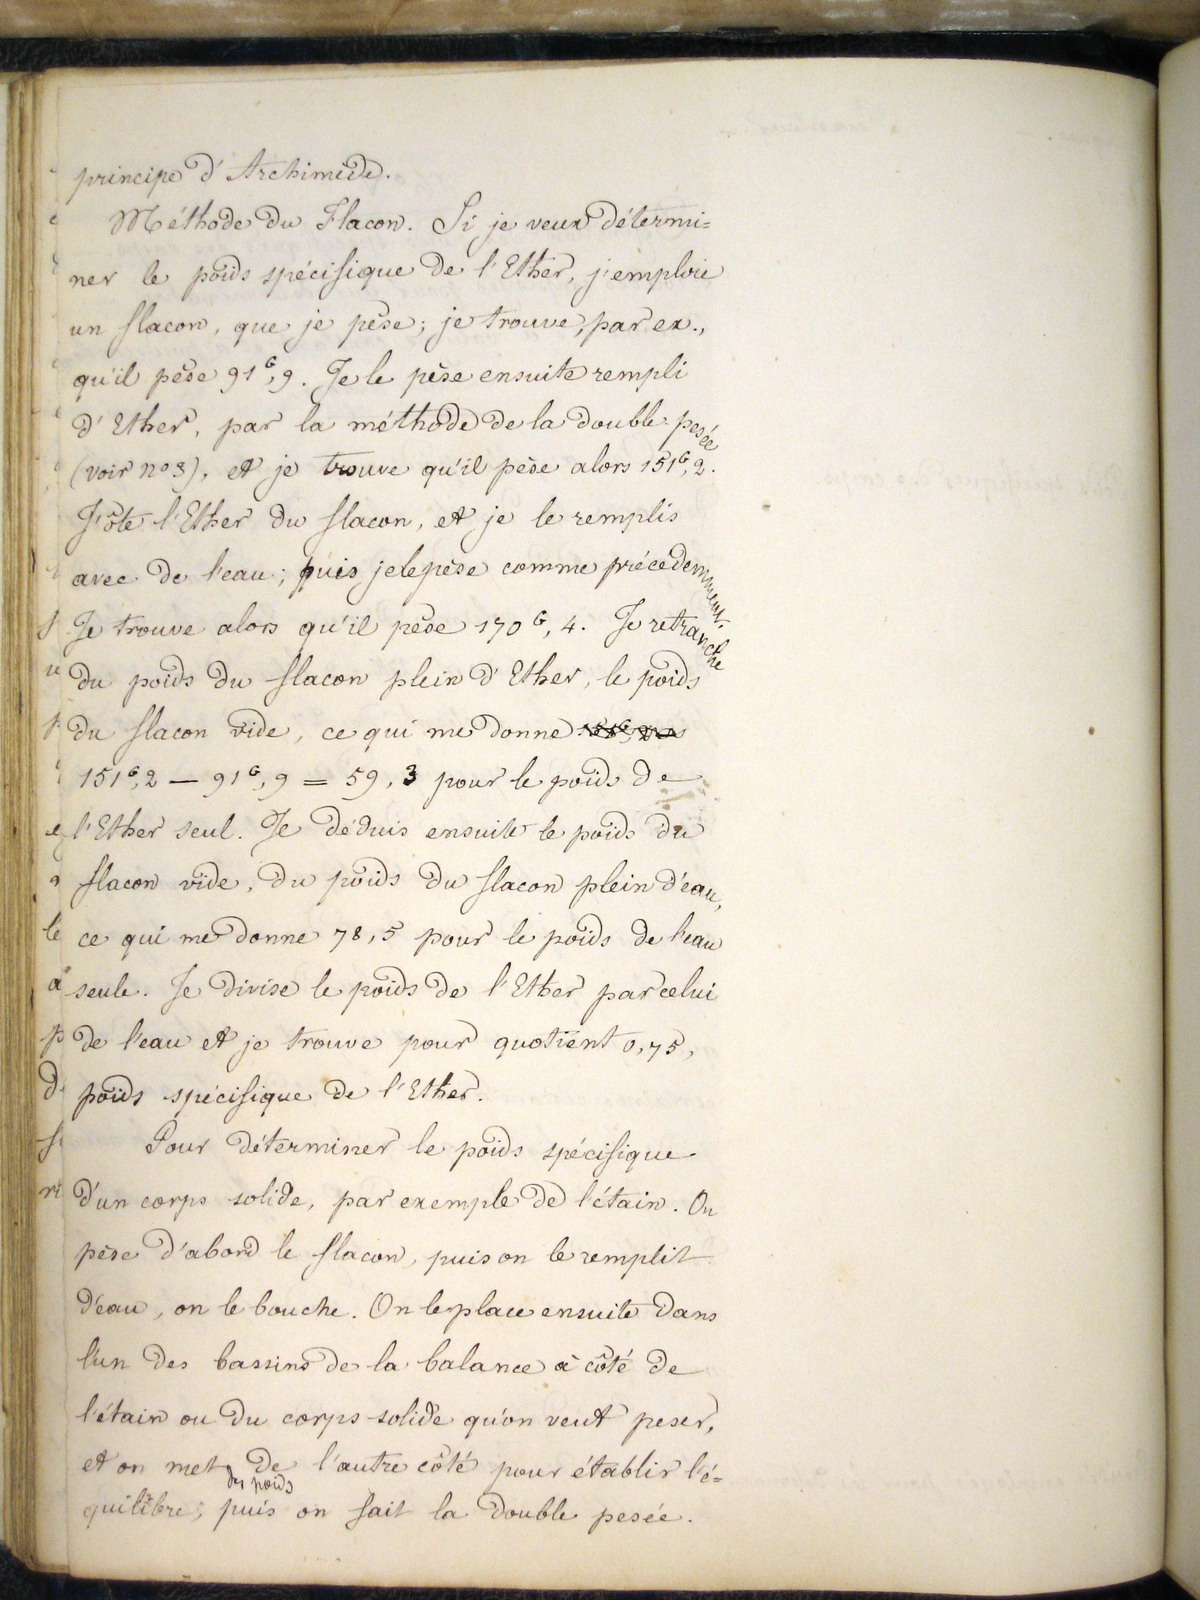 principe d'Archimède.
Méthode du Flacon. Si je veux détermi=
ner le poids spécifique de l'Ether, j'emploie
un flacon, que je pèse; je trouve, par ex.,
qu'il pèse 91G,9. Je le pèse ensuite rempli
d'Ether, par la méthode de la double pesée
(voir no 3), et je trouve qu'il pèse alors 151G,2.
J'ôte l'Ether du flacon, et je le remplis
avec de l'eau; puis je le pèse comme précédemment.
Je trouve alors qu'il pèse 170G,4. Je retranche
du poids du flacon plein d'Ether, le poids
du flacon vide, ce qui me donne
151G,2 — 91G,9 = 59,3 pour le poids de
l'Ether seul. Je déduis ensuite le poids du
flacon vide, du poids du flacon plein d'eau,
ce qui me donne 78,5 pour le poids de l'eau
seule. Je divise le poids de l'Ether par celui
de l'eau et je trouve pour quotient 0,75,
poids spécifique de l'Ether.
Pour déterminer le poids spécifique
d'un corps solide, par exemple de l'étain. On
pèse d'abord le flacon, puis on le remplit
d'eau, on le bouche. On le place ensuite dans
l'un des bassins de la balance à côté de
l'étain ou du corps solide qu'on veut peser,
et on met de l'autre côté pour établir l'é=
des poids
quilibre; puis on fait la double pesée.